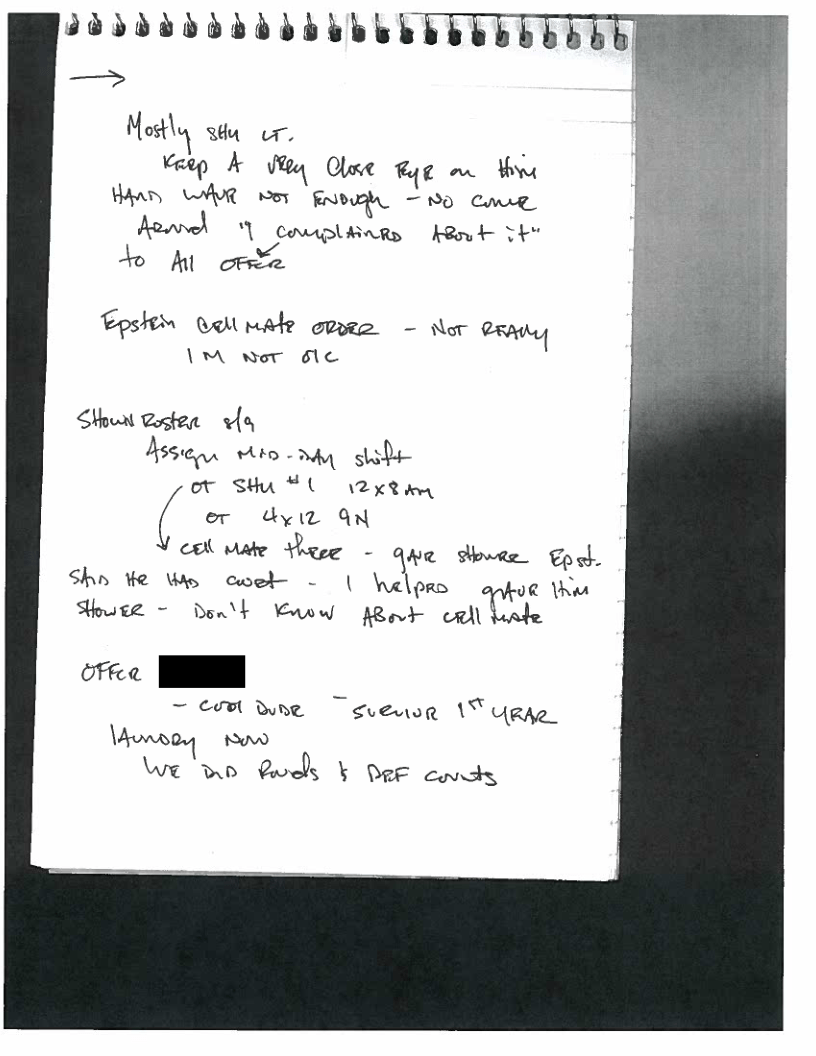 →
Mostly SHU LT.
KEEP A VERY Close EYE on Him
HAND WAVE NOT ENOUGH - NO COME
Around "I COMPLAINED ABOUT it"
to All OFFCER
Epstein CELL MATE ORDER - NOT READY
I M NOT OIC
SHOWN ROSTER 8/9
Assign MID-DAY shift
OT SHU #1 12x8 AM
OT 4x12 9N
CELL MATE there - gave Epst.
SAID HE HAD - I helpED gAVE Him
SHOWER - Don't Know ABout cell mate
OFFCR
- COOL DUDE - 1ST YEAR
LAUNDRY NOW
WE DID Rounds & DEF counts